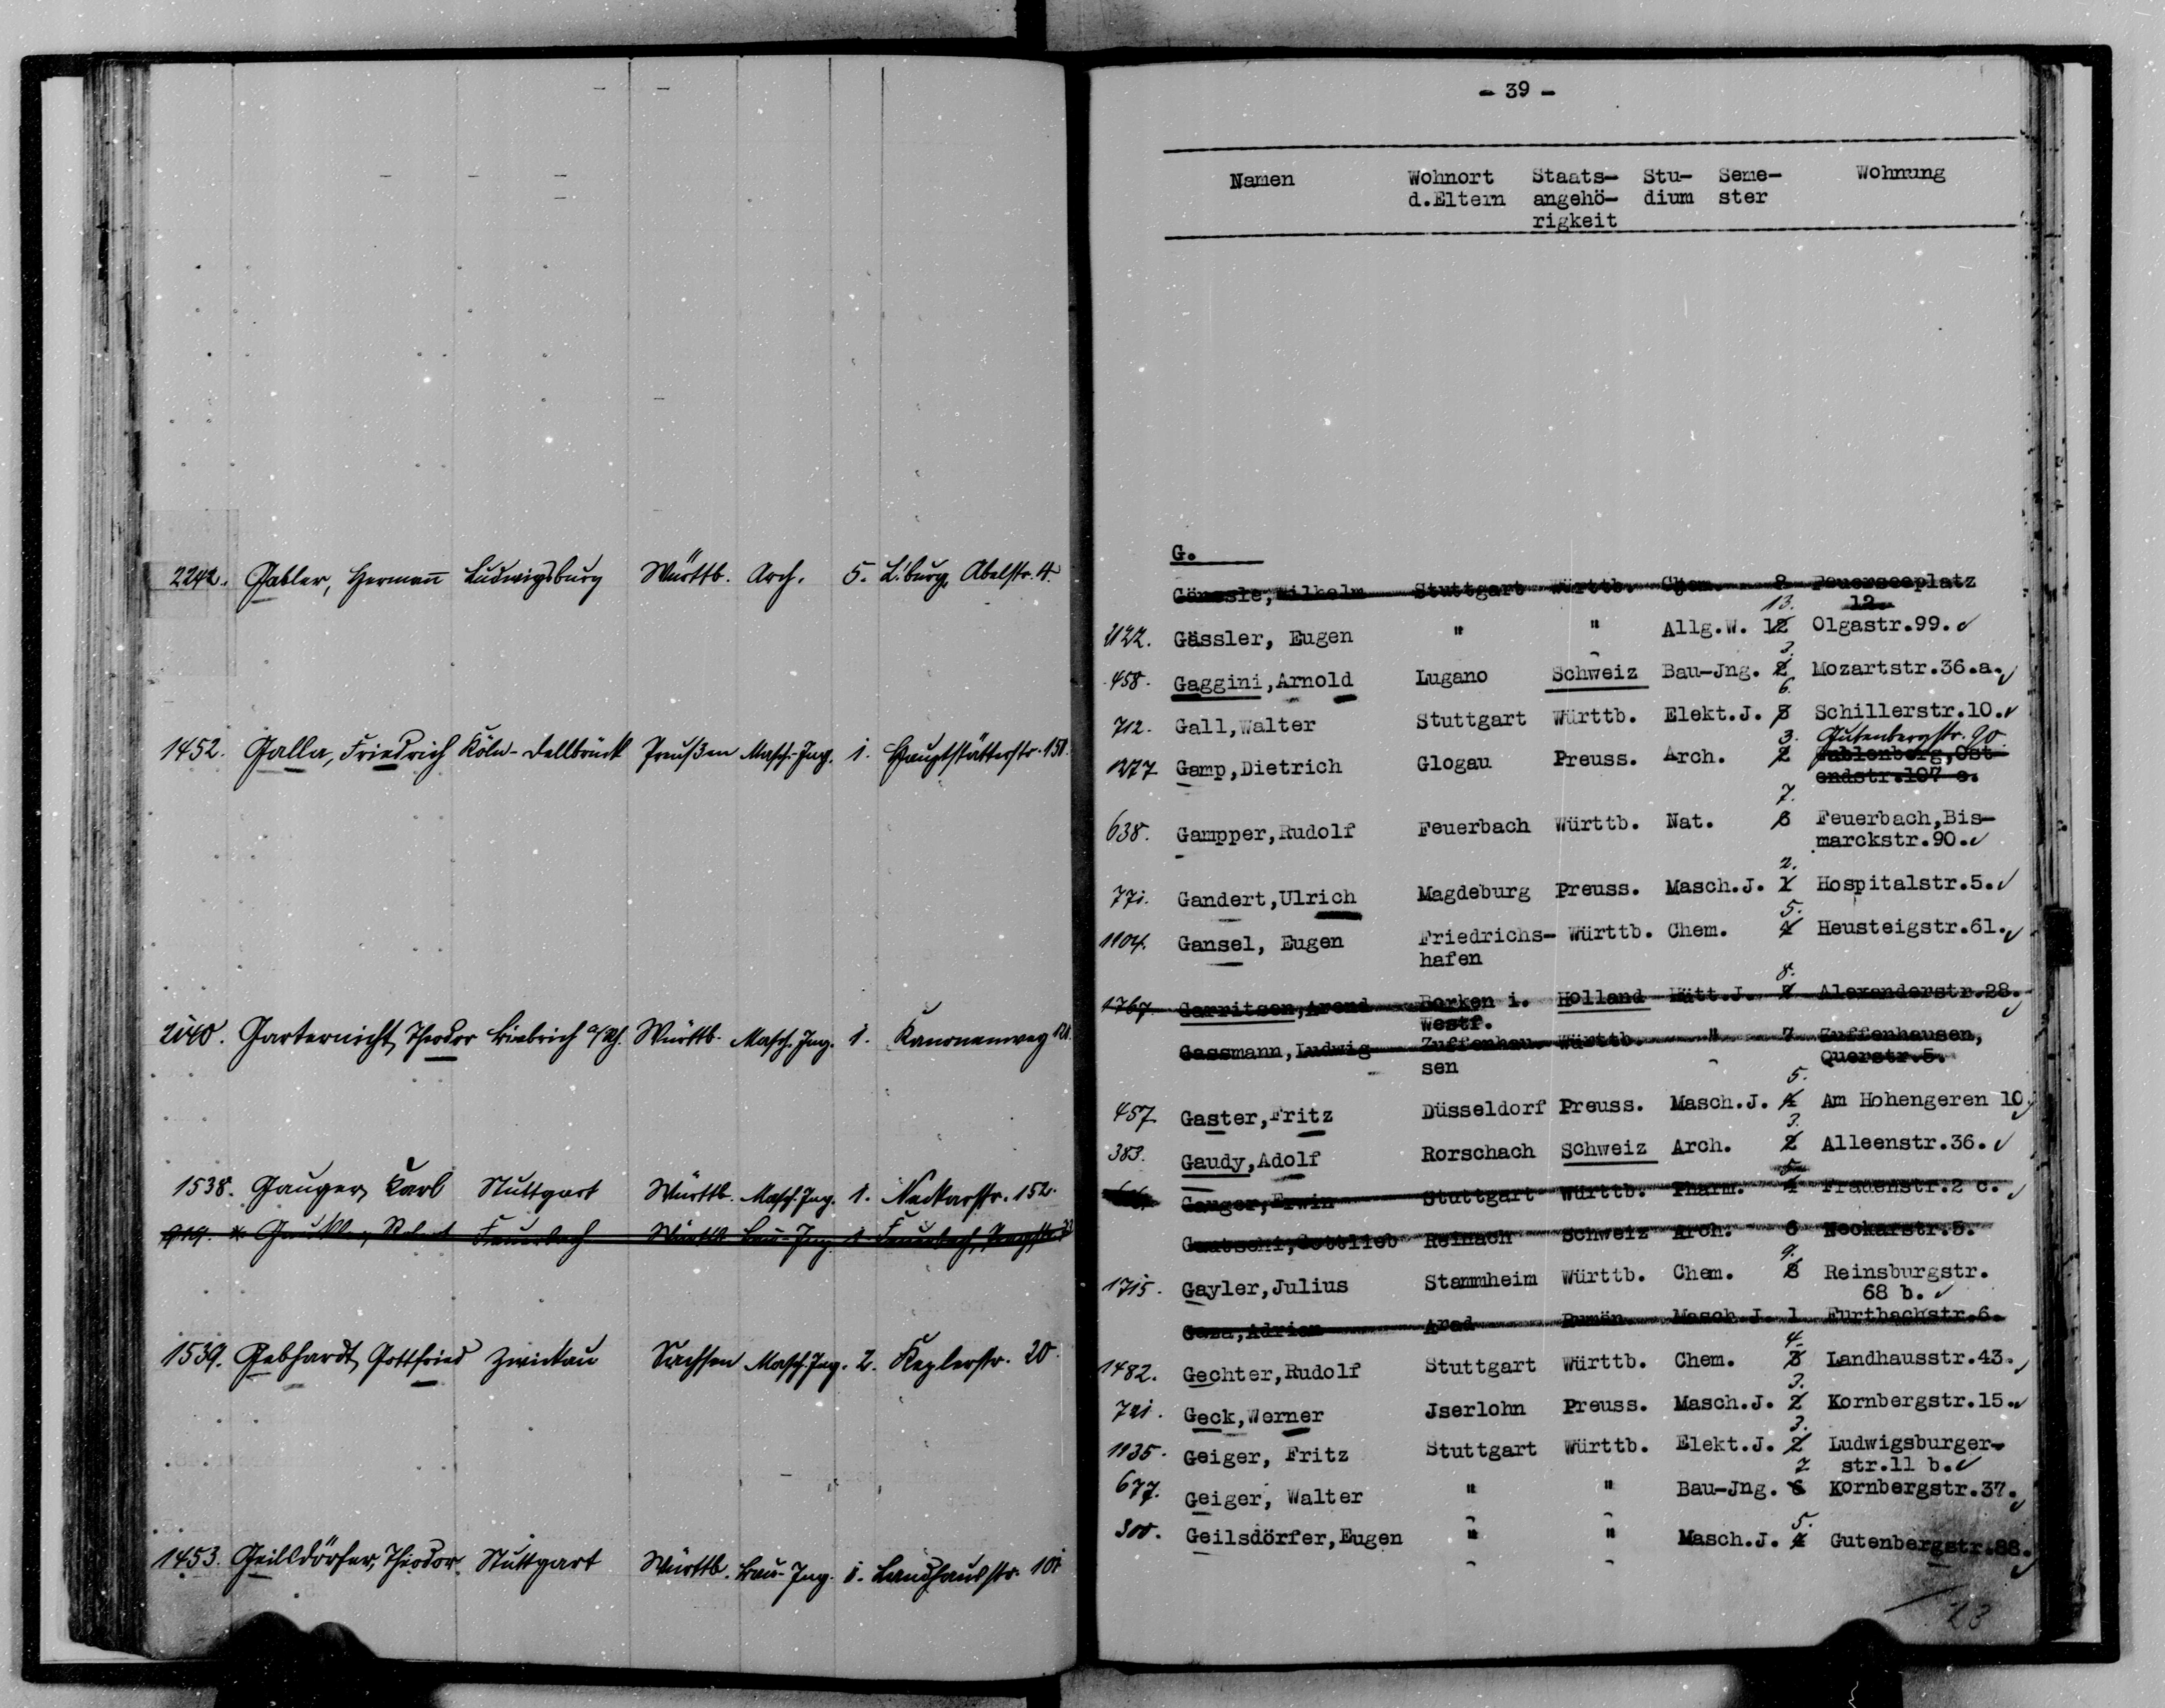 2242. Gabler, Hermann Ludwigsburg Württb. Arch. 5. L'burg, Abelstr. 4.
1452. Galla, Friedrich Köln-Dellbrück Preußen Masch. Ing. 1. Hauptstätterstr. 150.
2040. Garternicht, Theodor Biebrich a/Rh. Württb. Masch. Ing. 1. Kanonenweg
1538. Gauger, Karl Stuttgart Württb. Masch. Ing. 1. Neckarstr. 152.
Feuerbach Württb. Bau-Ing. 1. Feuerbach,
1539. Gebhardt, Gottfried Zwickau Sachsen Masch. Ing. 2. Keplerstr. 20.
1453. Geilsdörfer, Theodor. Stuttgart Württb. Bau-Ing. 1. Landhausstr. 101
- 39 -
Namen Wohnort Staats- Stu- Seme- Wohnung
d.Eltern angehö- dium ster
rigkeit
G.
Gönssle, Wilhelm Stuttgart Württb. Chem. 8 Feuerseeplatz
13. 12.
2122. Gässler, Eugen " " Allg.W. 12 Olgastr.99.
3.
458. Gaggini,Arnold Lugano Schweiz Bau-Jng. 2 Mozartstr.36.a.
6.
712. Gall,Walter Stuttgart Württb. Elekt.J. 5 Schillerstr.10.
3. Gutenbergstr. 90.
1277 Gamp,Dietrich Glogau Preuss. Arch. 2 Gablenberg,Ost-
endstr.107 c.
7.
638. Gampper,Rudolf Feuerbach Württb. Nat. 6 Feuerbach,Bis-
marckstr.90.
2.
771. Gandert,Ulrich Magdeburg Preuss. Masch.J. 1 Hospitalstr.5.
5.
1904. Gansel, Eugen Friedrichs- Württb. Chem. 4 Heusteigstr.61.
hafen
8.
1767. Garritsen,Arend Borken i. Holland Hütt.J. 7 Alexanderstr.28.
Westf.
Gassmann,Ludwig Zuffenhau- Württb. " 7 Zuffenhausen,
sen Querstr.5.
5.
457 Gaster,Fritz Düsseldorf Preuss. Masch.J. 4 Am Hohengeren 10
3.
383. Gaudy,Adolf Rorschach Schweiz Arch. 2 Alleenstr.36.
5
Gauger,Erwin Stuttgart Württb. Pharm. 4 Frauenstr.2 c.
Gautschi,Gottlieb Reinach Schweiz Arch. 6 Neckarstr.5.
9.
1715. Gayler,Julius Stammheim Württb. Chem. 8 Reinsburgstr.
68 b.
Gaza,Adrian Arad Rumän. Masch.J. 1 Furtbachstr.6.
4.
1482. Gechter,Rudolf Stuttgart Württb. Chem. 3 Landhausstr.43.
3.
721. Geck,Werner Jserlohn Preuss. Masch.J. 2 Kornbergstr.15.
3.
1935. Geiger, Fritz Stuttgart Württb. Elekt.J. 2 Ludwigsburger-
7 str.11 b.
677. Geiger, Walter " " Bau-Jng. 6 Kornbergstr.37.
5.
300. Geilsdörfer,Eugen " " Masch.J. 4 Gutenbergstr.88.
23